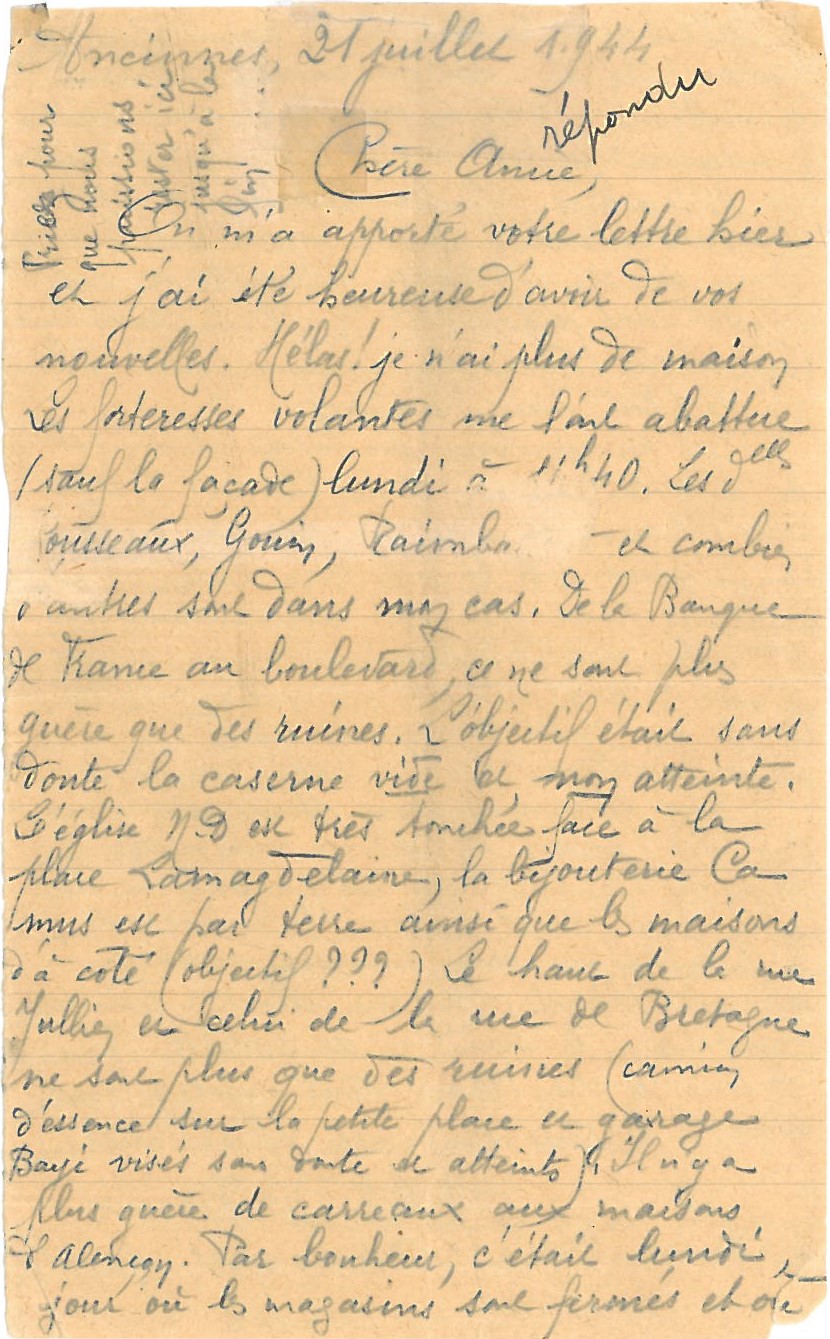 Ancinnes, 21 juillet 1.944
répondu
Priez pour
que nous
puissions
rester ici
jusqu'à la
fin
Chère Amie,
On m'a apporté votre lettre hier
et j'ai été heureuse d'avoir de vos
nouvelles. Hélas! je n'ai plus de maison
Les forteresses volantes me l'ont abattue
(sauf la façade) lundi à 11h40. Les delles
ousseaux, Gouin, Raimba et combien
d'autres sont dans mon cas. De la Banque
de France au boulevard, ce ne sont plus
guère que des ruines. L'objectif était sans
doute la caserne vide et non atteinte.
L'église N.D est très touchée face à la
place Lamagdelaine, la bijouterie Ca
mus est par terre ainsi que les maisons
d'à côté (objectif ???) Le haut de la rue
Jullien et celui de la rue de Bretagne
ne sont plus que des ruines (camion
d'essence sur la petite place et garage
visés sans doute et atteints). Il n'y a
plus guère de carreaux aux maisons
d'Alençon. Par bonheur, c'était lundi,
jour où les magasins sont fermés et où